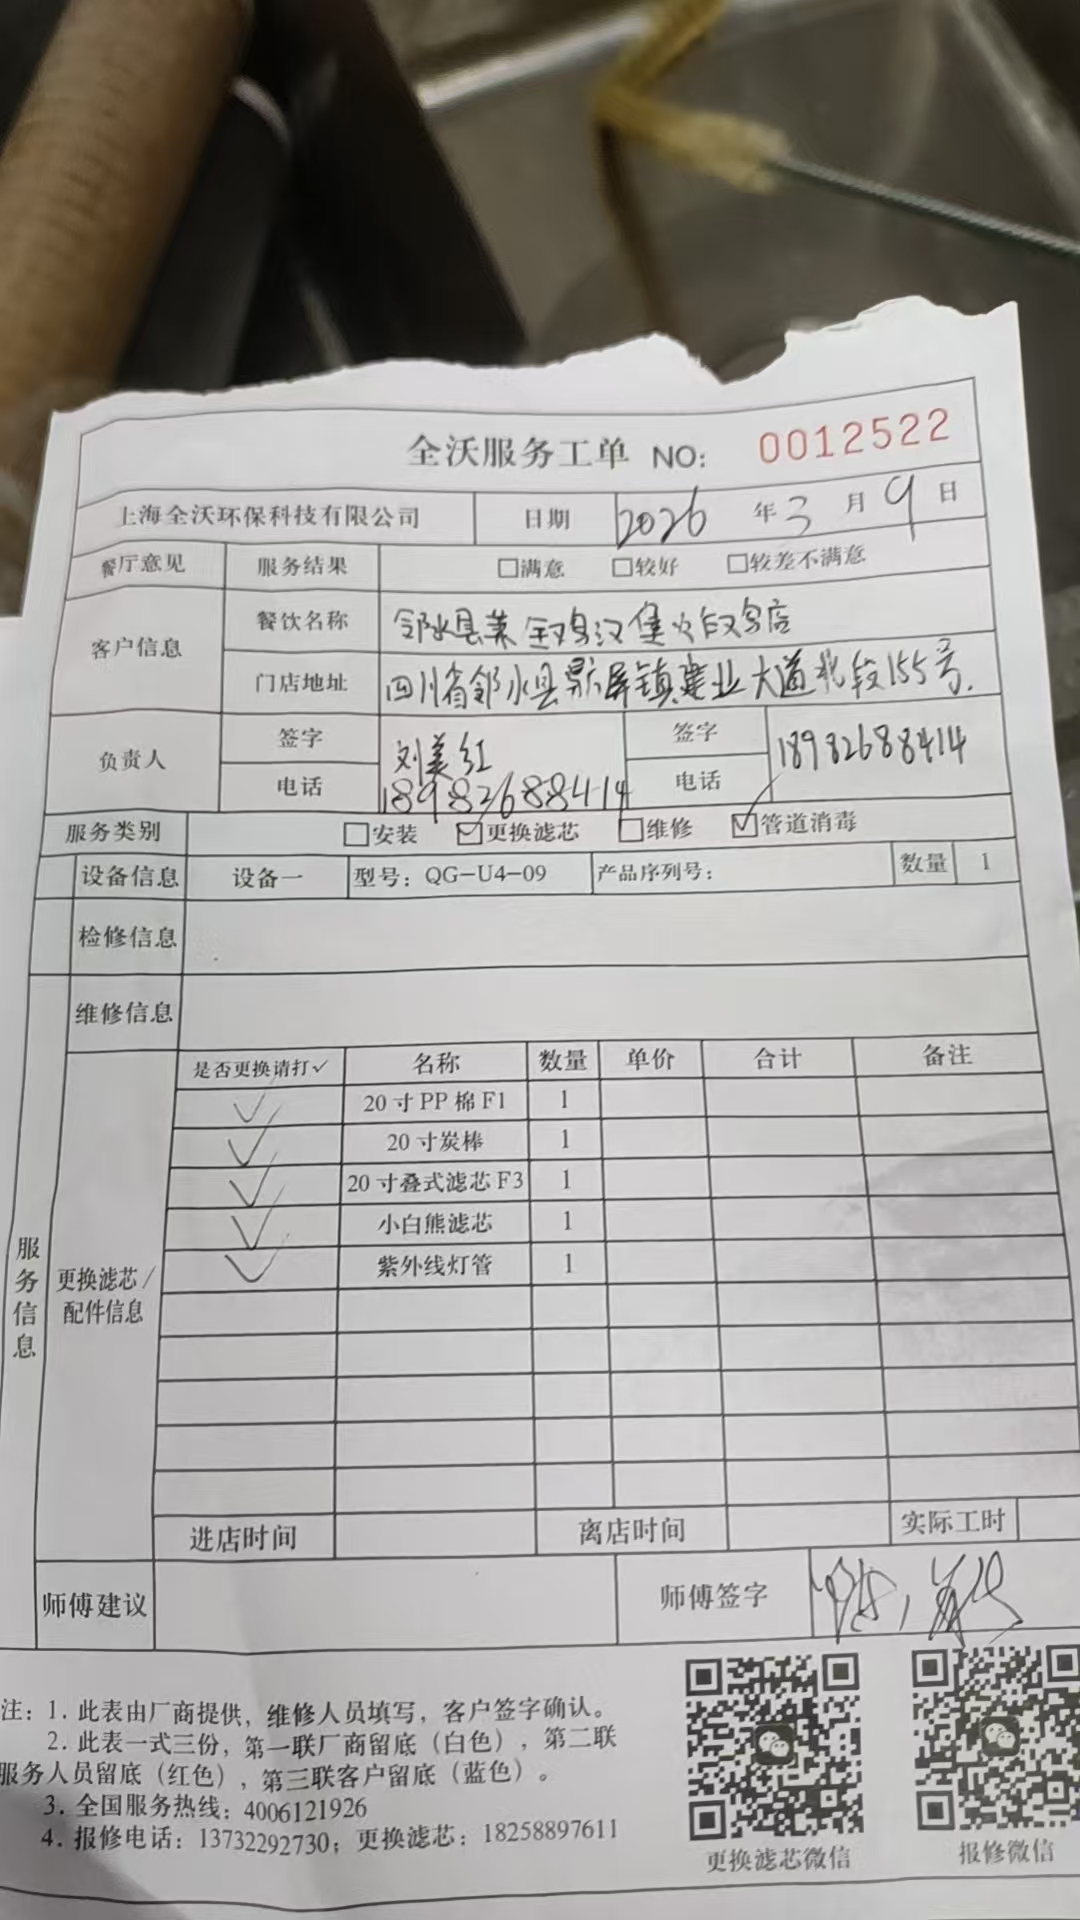 全沃服务工单 NO: 0012522
上海全沃环保科技有限公司 日期 2026 年 3 月 9 日
餐厅意见 服务结果 □满意 □较好 □较差不满意
客户信息 餐饮名称 邻水县莱 汉堡 店
门店地址 四川省邻水县鼎屏镇建业大道北段155号.
负责人 签字 刘美红 签字
电话 18982688414 电话 18982688414
服务类别 □安装 ☑更换滤芯 □维修 ☑管道消毒
设备信息 设备一 型号: QG-U4-09 产品序列号: 数量 1
检修信息
维修信息
服务信息
更换滤芯/配件信息
是否更换请打✓ 名称 数量 单价 合计 备注
✓ 20寸PP棉F1 1
✓ 20寸炭棒 1
✓ 20寸叠式滤芯F3 1
✓ 小白熊滤芯 1
✓ 紫外线灯管 1
进店时间 离店时间 实际工时
师傅建议 师傅签字
注: 1. 此表由厂商提供, 维修人员填写, 客户签字确认。
2. 此表一式三份, 第一联厂商留底 (白色), 第二联
服务人员留底 (红色), 第三联客户留底 (蓝色) 。
3. 全国服务热线: 4006121926
4. 报修电话: 13732292730; 更换滤芯: 18258897611
更换滤芯微信 报修微信